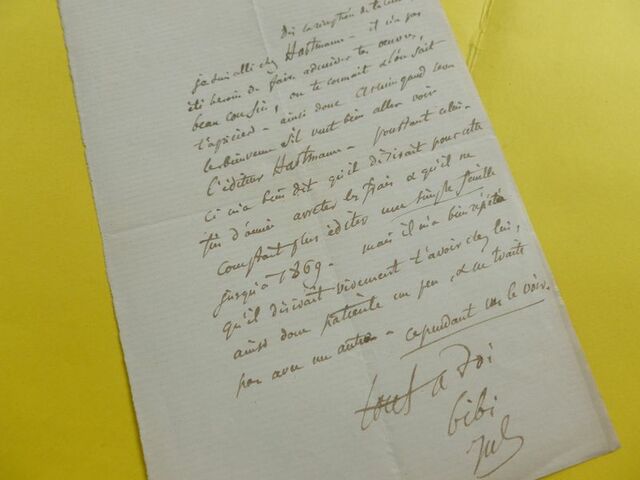 Dès la réception de ta
je suis allé chez Hartmann - il n'a pas
été besoin de faire admirer tes œuvres,
beau cousin, on te connait & l'on sait
t'apprécier - ainsi donc Armingaud sera
le bienvenu s'il veut bien aller voir
l'éditeur Hartmann - pourtant celui-
ci m'a bien dit qu'il désirait pour cette
fin d'année arrêter les frais & qu'il ne
comptait plus éditer une simple feuille
jusqu'à 1869 - mais il m'a bien répété
qu'il désirait vivement t'avoir chez lui,
ainsi donc patiente un peu, & ne traite
pas avec un autre - cependant va le voir.
tout à toi
bibi